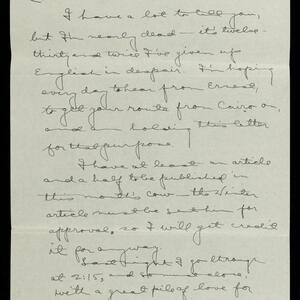 I have a lot to tell you,
but I'm nearly dead — it's twelve-
thirty and twice I've given up
English in despair. I'm hoping
every day to hear from Ernest,
to get your route from Cairo on,
and am holding this letter
for that purpose.
I have at least an article
and a half to be published in
this month's
article must be sent him for
approval, so I will get credit
it for anyway.
Last night I go through
at 2:15, and alone.
With a great pile of love for